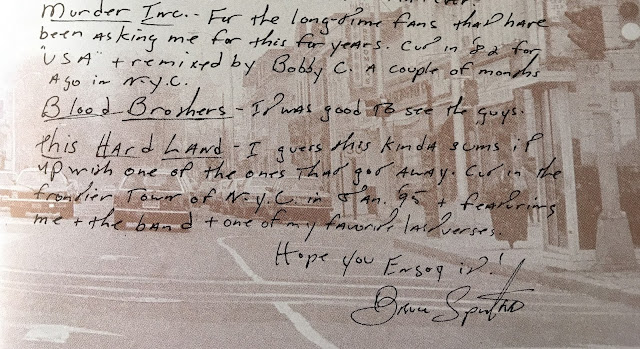 Murder Inc. - For the long-time fans that have
been asking me for this for years. Cut in '82 for
"USA" + remixed by Bobby C. a couple of months
ago in N.Y.C.
Blood Brothers - It was good to see the guys.
This Hard Land - I guess this kinda sums it
up with one of the ones that got away. Cut in the
frontier town of N.Y.C. in Jan. 95 + featuring
me + the band + one of my favorite last verses.
Hope you enjoy it!
Bruce Springsteen